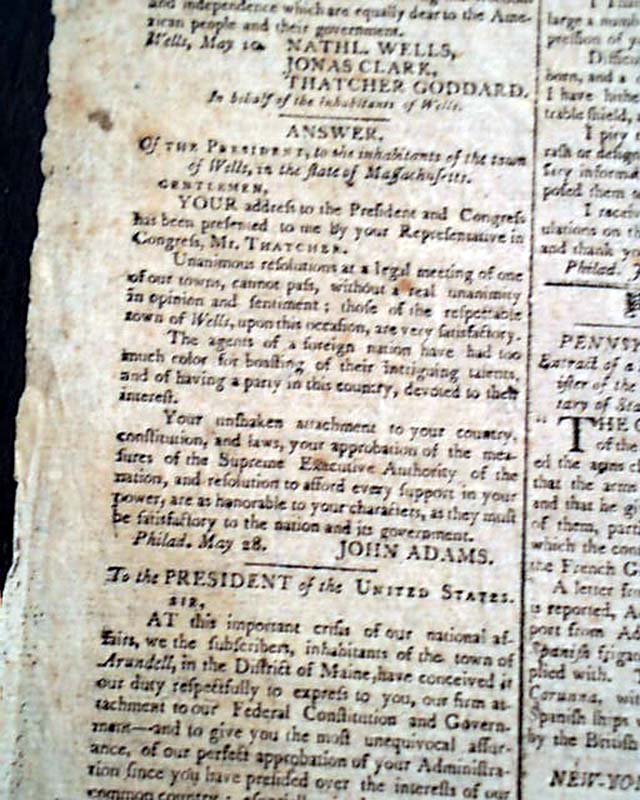 and independence which are equally dear to the Ame-
rican people and their government.
Wells, May 10. NATHL. WELLS,
JONAS CLARK,
THATCHER GODDARD.
In behalf of the inhabitants of Wells.
ANSWER,
Of THE PRESIDENT, to the inhabitants of the town
of Wells, in the ſtate of Maſſachuſetts.
GENTLEMEN,
YOUR addreſs to the Preſident and Congreſs
has been preſented to me by your Repreſentative in
Congreſs, Mr. THATCHER.
Unanimous reſolutions at a legal meeting of one
of our towns, cannot paſs, without a real unanimity
in opinion and ſentiment; thoſe of the reſpectable
town of Wells, upon this occaſion, are very ſatisfactory.
The agents of a foreign nation have had too
much color for boaſting of their intriguing talents,
and of having a party in this country, devoted to their
intereſt.
Your unſhaken attachment to your country,
conſtitution, and laws, your approbation of the mea-
ſures of the Supreme Executive Authority of the
nation, and reſolution to afford every ſupport in your
power, are as honorable to your characters, as they muſt
be ſatisfactory to the nation and its government.
Philad. May 28. JOHN ADAMS.
To the PRESIDENT of the UNITED STATES.
SIR,
AT this important criſis of our national af-
fairs, we the ſubſcribers, inhabitants of the town of
Arundell, in the Diſtrict of Maine, have conceived it
our duty reſpectfully to expreſs to you, our firm at-
tachment to our Federal Conſtitution and Govern-
ment—and to give you the moſt unequivocal aſſur-
ance, of our perfect approbation of your Adminiſtra-
tion ſince you have preſided over the intereſts of our
common country; eſpecially
large a
preſſion of
Difficul
born, and a
I have
trable ſhield,
I pray
raſh or
ſary informa
poſed them
I receiv
ulations on th
and thank yo
Philad.
PENNSY
Extract of a
iſter of the
tary of Sta
"THE
of the
ed the agms
that the arms
and that he
of them, part
which the com
the French G
A letter fr
is reported, A
port from Ad
Spaniſh frigat
plied with.
Corunna, wi
Spaniſh ſhips
by the Britiſh
NEW-YO